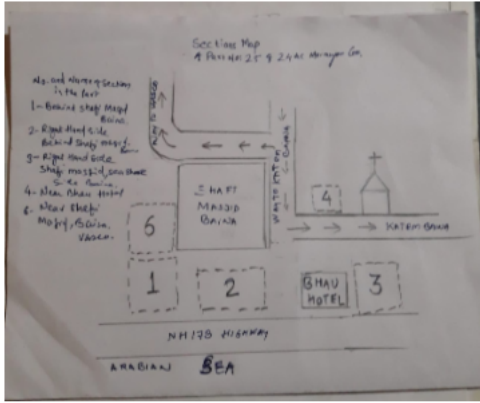 Section Map
No. and Name of Section
in the Part
1- Behind Shafi Masjid
Baina.
2- Right Hand Side
Behind Shafi masjid
3- Right Hand Side
Shafi masjid, sea
Baina.
4- Near Bhau Hotel
6- Near Shafi
Masjid, Baina,
Vasco.
BAINA
4
SHAFI
MASJID
BAINA
6
KATEM BAINA
1
2
BHAU
HOTEL
3
NH17B HIGHWAY
ARABIAN SEA